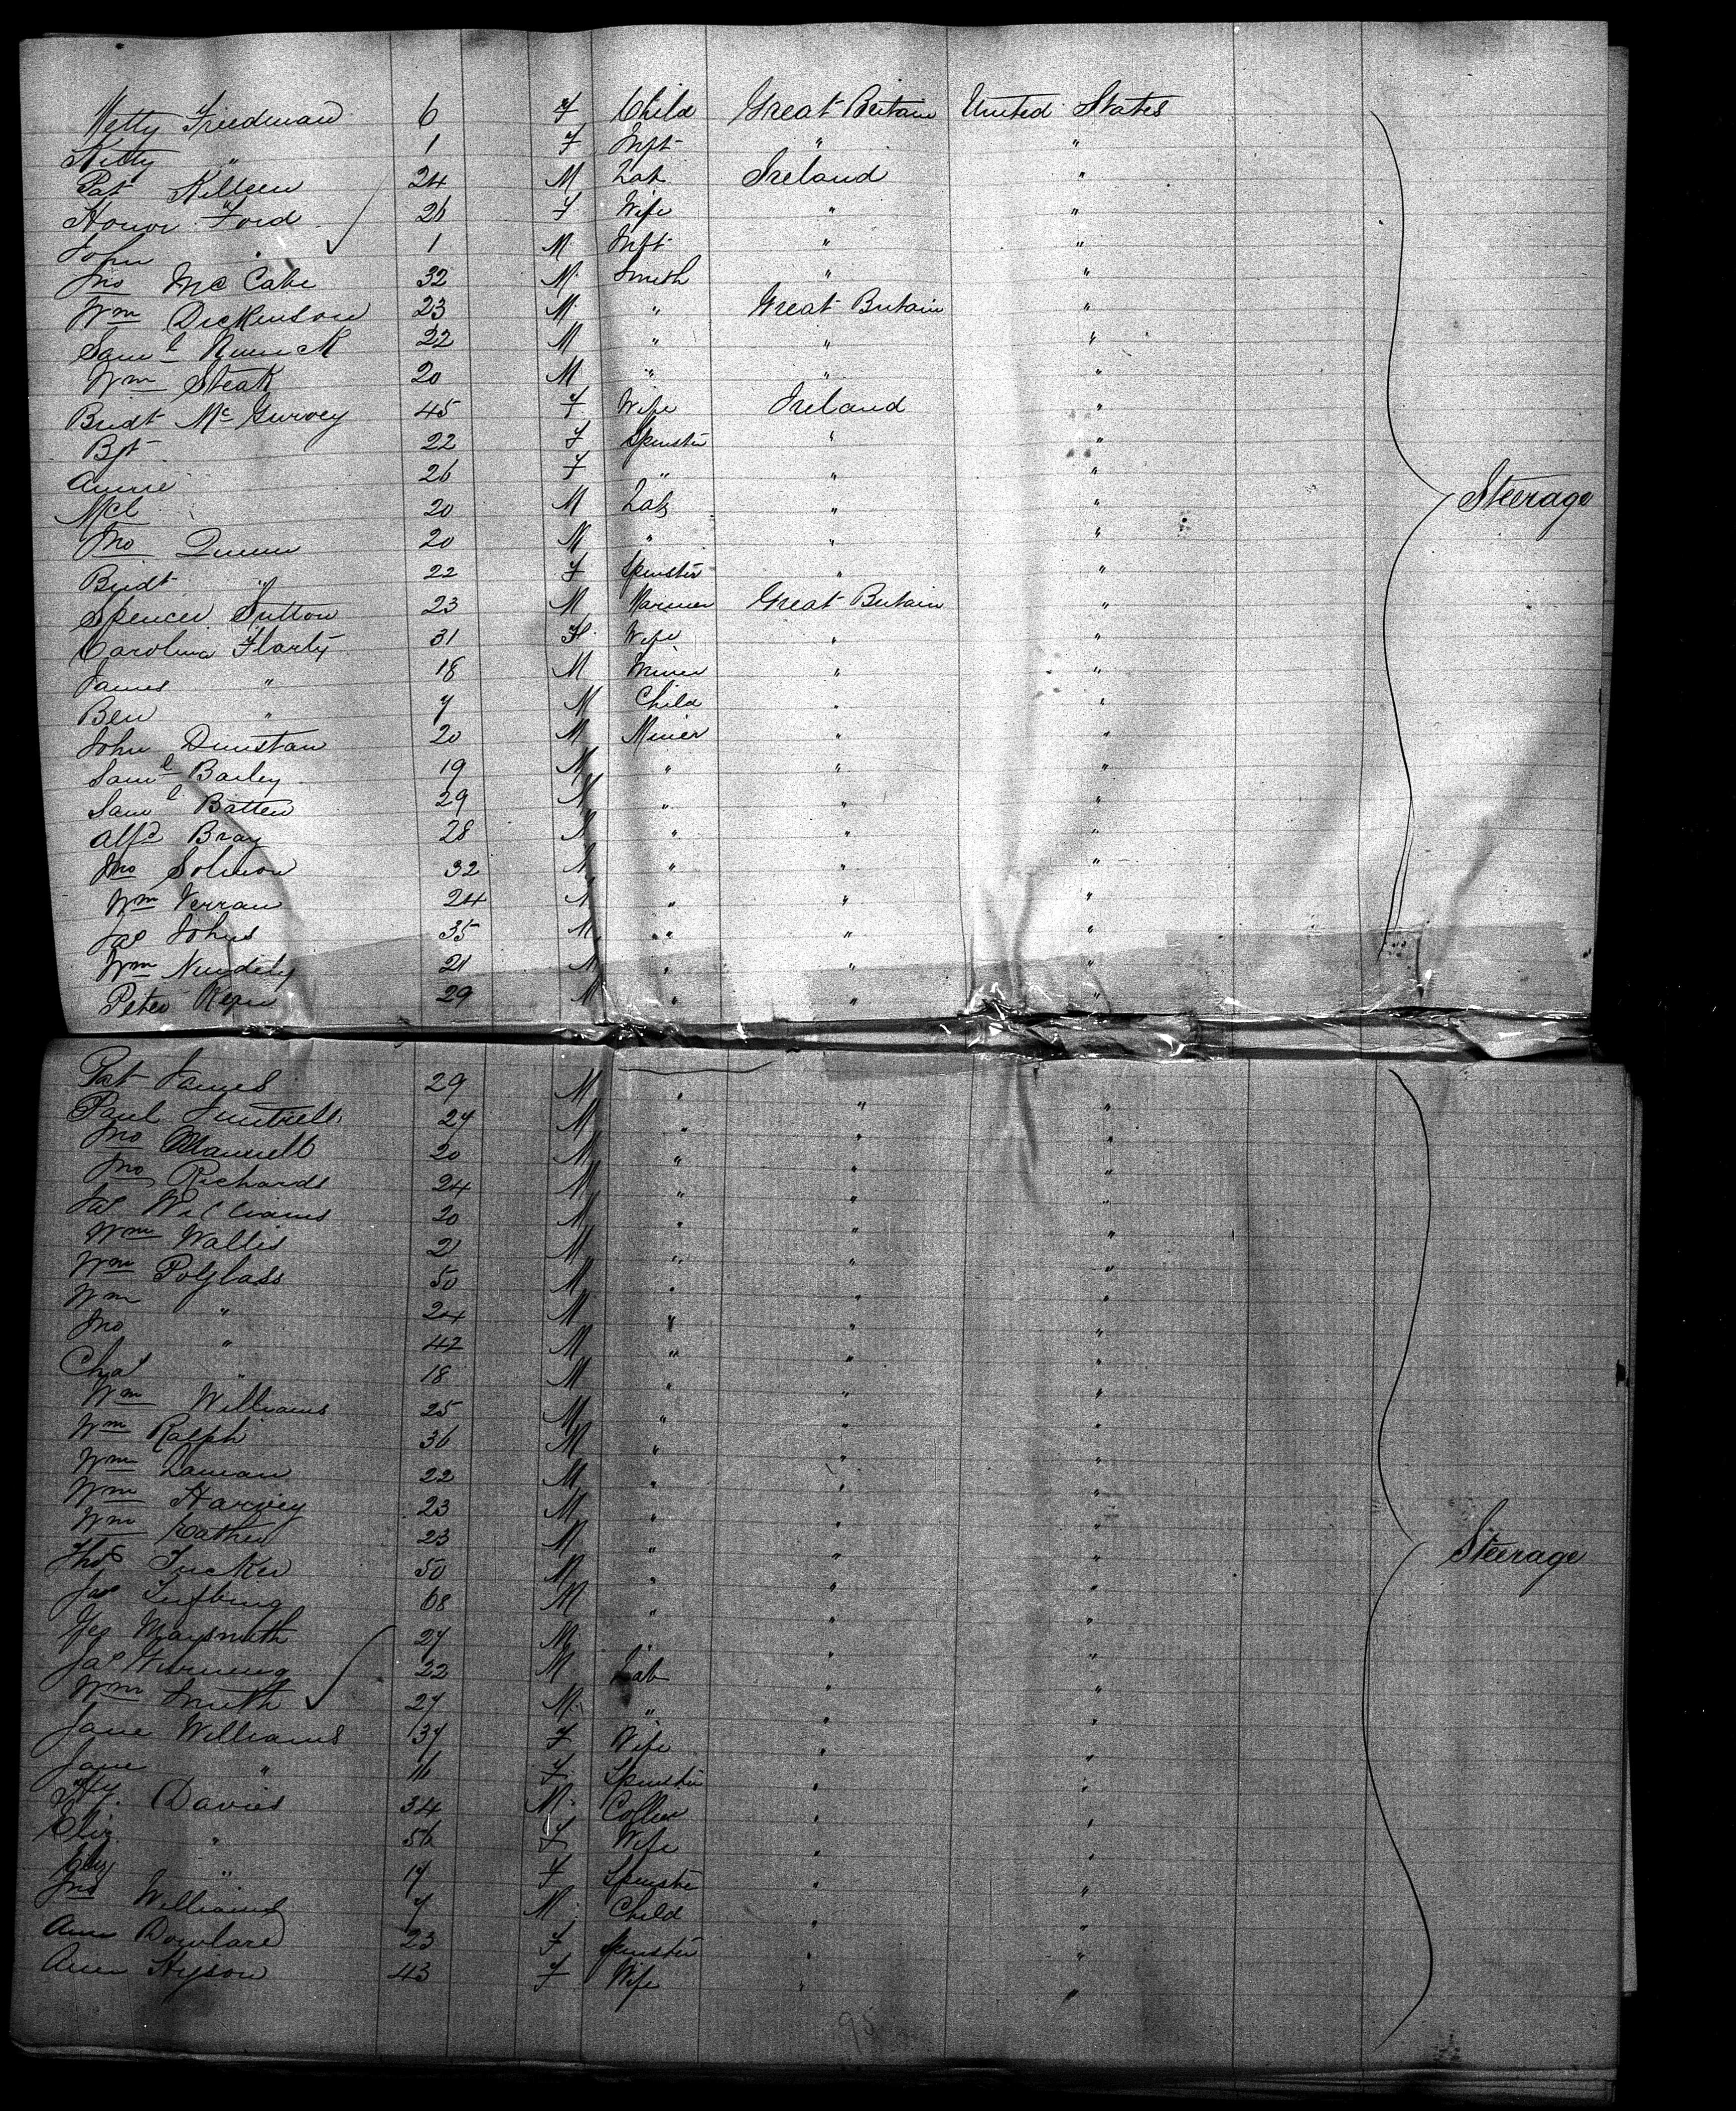 Netty Freedman 6 F Child Great Britain United States
Kitty " 1 F Inft " "
Pat Killeen 24 M Lab Ireland "
Honor Ford 26 F Wife " "
John " 1 M Inft " "
Jno McCabe 32 M Smith " "
Wm Dickinson 23 M " Great Britain "
Saml 22 M " " "
Wm Steak 20 M " " "
Bridt McGurvey 45 F Wife Ireland "
Bjt 22 F Spinster " "
Annie 26 F " " "
Mcl 20 M Lab " "
Jno Quinn 20 M " " "
Bridt " 22 F Spinster " "
Spencer Sutton 23 M Great Britain "
Carolina Flarty 31 F Wife " "
James " 18 M Miner " "
Ben " 7 M Child " "
John Dunstan 20 M Miner " "
Saml Bailey 19 M " " "
Saml Batten 29 M " " "
Alfd Bray 28 M " " "
Jno Solmon 32 M " " "
Wm Verran 24 M " " "
Jas Johns 35 M " " "
Wm 21 M " " "
Peter 29 M " " "
Steerage
Pat James 29 M " " "
Paul 27 M " " "
Jno 20 M " " "
Jno Richards 24 M " " "
Jas Williams 20 M " " "
Wm Wallis 21 M " " "
Wm Polglass 50 M " " "
Wm " 24 M " " "
Jno " 42 M " " "
Chas " 18 M " " "
Wm Williams 25 M " " "
Wm Ralph 36 M " " "
Wm Laman 22 M " " "
Wm Harvey 23 M " " "
Wm 23 M " " "
Thos Tucker 50 M " " "
Jas 68 M " " "
Geo Maysmith 27 M " " "
Jas 22 M Lab " "
Wm Smith 27 M " " "
Jane Williams 37 F Wife " "
Jane " 16 F Spinster " "
Hy. Davies 34 M Collier " "
Eliz " 56 F Wife " "
Eliz " 17 F Spinster " "
Jno Williams 7 M Child " "
Ann 23 F Spinster " "
Ann Hyson 43 F Wife " "
Steerage
95